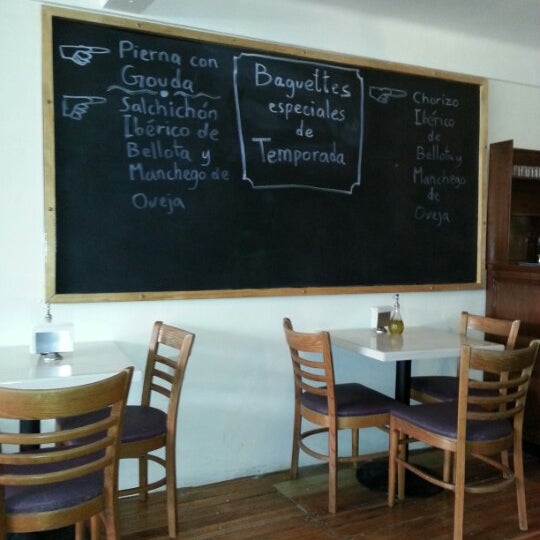 Pierna con
Gouda
Salchichón
Ibérico de
Bellota y
Manchego de
Oveja
Baguettes
especiales
de
Temporada
Chorizo
Ibérico
de
Bellota y
Manchego
de
Oveja